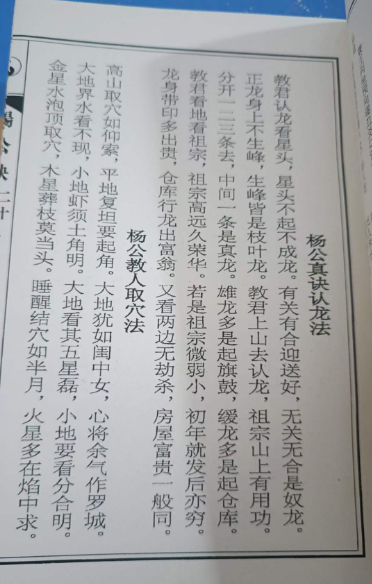 杨公真诀认龙法
教君认龙看星头，星头不起不成龙。有关有合迎送好，无关无合是奴龙。
正龙身上不生峰，生峰皆是枝叶龙。教君上山去认龙，祖宗山上有用功。
分开一二三条去，中间一条是真龙。雄龙多是起旗鼓，缓龙多是起仓库。
教君看地看祖宗，祖宗高远久荣华。若是祖宗微弱小，初年就发后亦穷。
龙身带印多出贵，仓库行龙出富翁。又看两边无劫杀，房屋富贵一般同。
杨公教人取穴法
高山取穴如仰索，平地复坦要起角。大地犹如闺中女，心将余气作罗城。
大地界水看不现，小地虾须土角明。大地看其五星磊，小地要看分合明。
金星水泡顶取穴，木星葬枝莫当头。睡醒结穴如半月，火星多在焰中求。